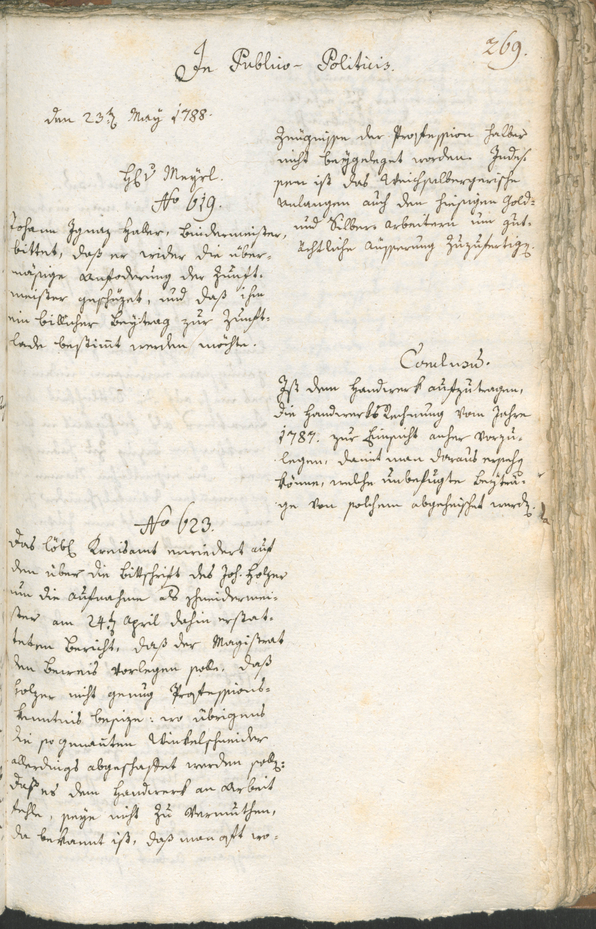 269.
In Publico-Politicis.
den 23t May 1788.
H. Meyrl.
No 619.
Johann Ignaz Haler, Bindermeister,
bittet, daß er wider die über-
mäsige Anfoderung der Zunft-
meister geschüzet, und daß ihm
ein billicher Beytrag zur Zunft-
lade bestimt werden möchte.
No 623.
Das löbl Kreisamt erwiedert auf
den über die Bittschrift des Joh. Holzer
um die Aufnahme als Schneidermei-
ster am 24t April dahin erstat-
teten Bericht, daß der Magistrat
den Beweis vorlegen solle, daß
Holzer nicht genug Professions-
kenntnis besize: wo übrigens
die so genanten Winkelschneider
allerdings abgeschaffet werden :
daß es dem Handwerk an Arbeit
fehle, seye nicht zu vermuthen,
da bekannt ist, daß man oft wo-
Zeugnisse der Profession halber
nicht beygeleget worden. Indes-
sen ist das Weichselbergerische
Anlangen auch den hiesigen Gold-
und Silber Arbeitern um gut-
ächtliche Äusserung zuzufertigen.
Conclusum.
Ist dem Handwerk aufzutragen,
die Handwerks Rechnung vom Jahre
1787. zur Einsicht anher vorzu-
legen, damit man daraus ersehen
könne, welche unbefugte Beyträ-
ge von solchem abgeheischet werden.